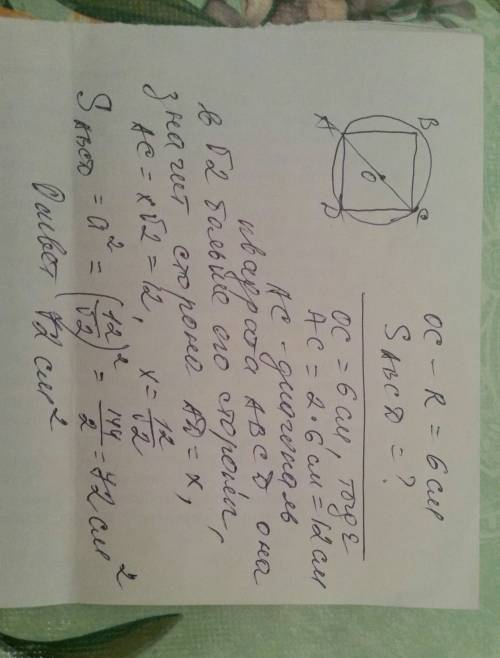 B
C
A
D
O
OC – R = 6 см
S ABCD = ?
OC = 6 см, тогда
AC = 2·6 см = 12 см
AC – диагональ
квадрата ABCD она
в √2 больше его стороны,
значит сторона AD = x,
AC = x√2 = 12, x = 12/√2
S ABCD = a² = (12/√2)² = 144/2 = 72 см²
Ответ 72 см²